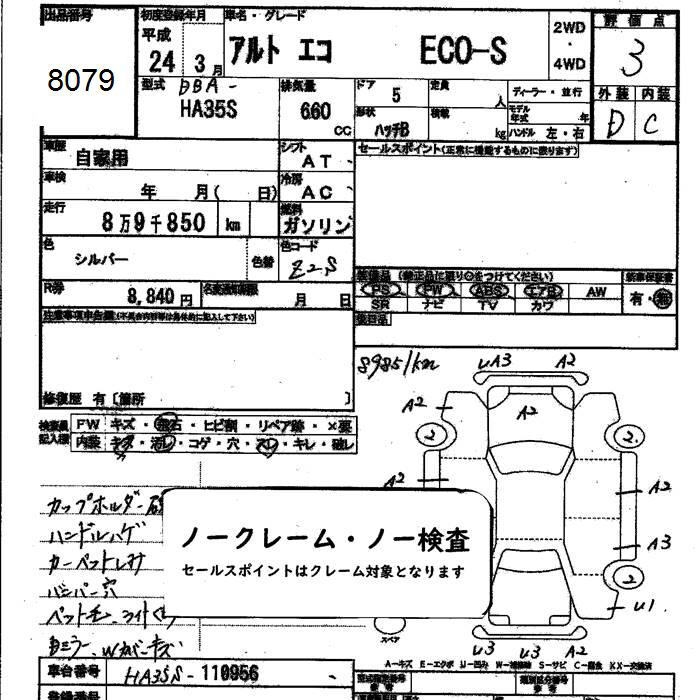 出品番号 初度登録年月 車名・グレード 2WD 評価点
8079 平成 24 3月 アルト エコ ECO-S ・ 4WD 3
型式 DBA- HA35S 排気量 660 CC ドア 5 定員 人 ディーラー・並行 外装 内装
形状 ハッチB 積載 kg モデル年式 年 ハンドル 左・右 D C
車歴 自家用 シフト AT セールスポイント(正常に機能するものに限ります)
車検 年 月( 日) 冷房 AC
走行 8万9千850 km 燃料 ガソリン
色 シルバー 色替 色コード Z2S
装備品 (純正品に限り○をつけてください) 新車保証書
PS PW ABS エアB AW 有・無
SR ナビ TV カワ
R券 8,840円 名変通知期限 月 日
後日品
注意事項申告欄(不具合内容等は具体的に記入して下さい)
89851km UA3 A2
修復歴 有 [箇所 ]
A2 A2
検査員記入欄 FW キズ・飛石・ヒビ割・リペア跡・×要
内装 キズ・汚レ・コゲ・穴・スレ・キレ・破レ
2 2
A2 A2
カップホルダー
ハンドルハゲ
カーペット
バンパー穴
ノークレーム・ノー検査
セールスポイントはクレーム対象となります
A3
2
U1
スペア
U3 U3 A2
A-キズ E-エクボ U-凹み W-補修跡 S-サビ C-腐食 XX-交換済
車台番号 HA35S-110956
型式指定番号 類別区分番号
登録番号